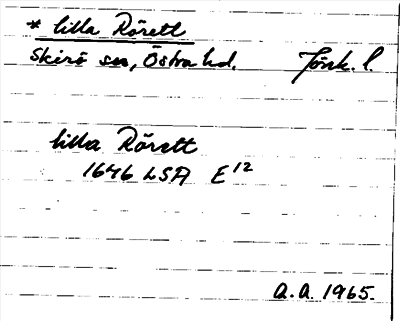 * lilla Rörett
Skirö sn, Östra hd. Jönk. l.
lilla Rörett
1646 LSA E12
A.A. 1965.